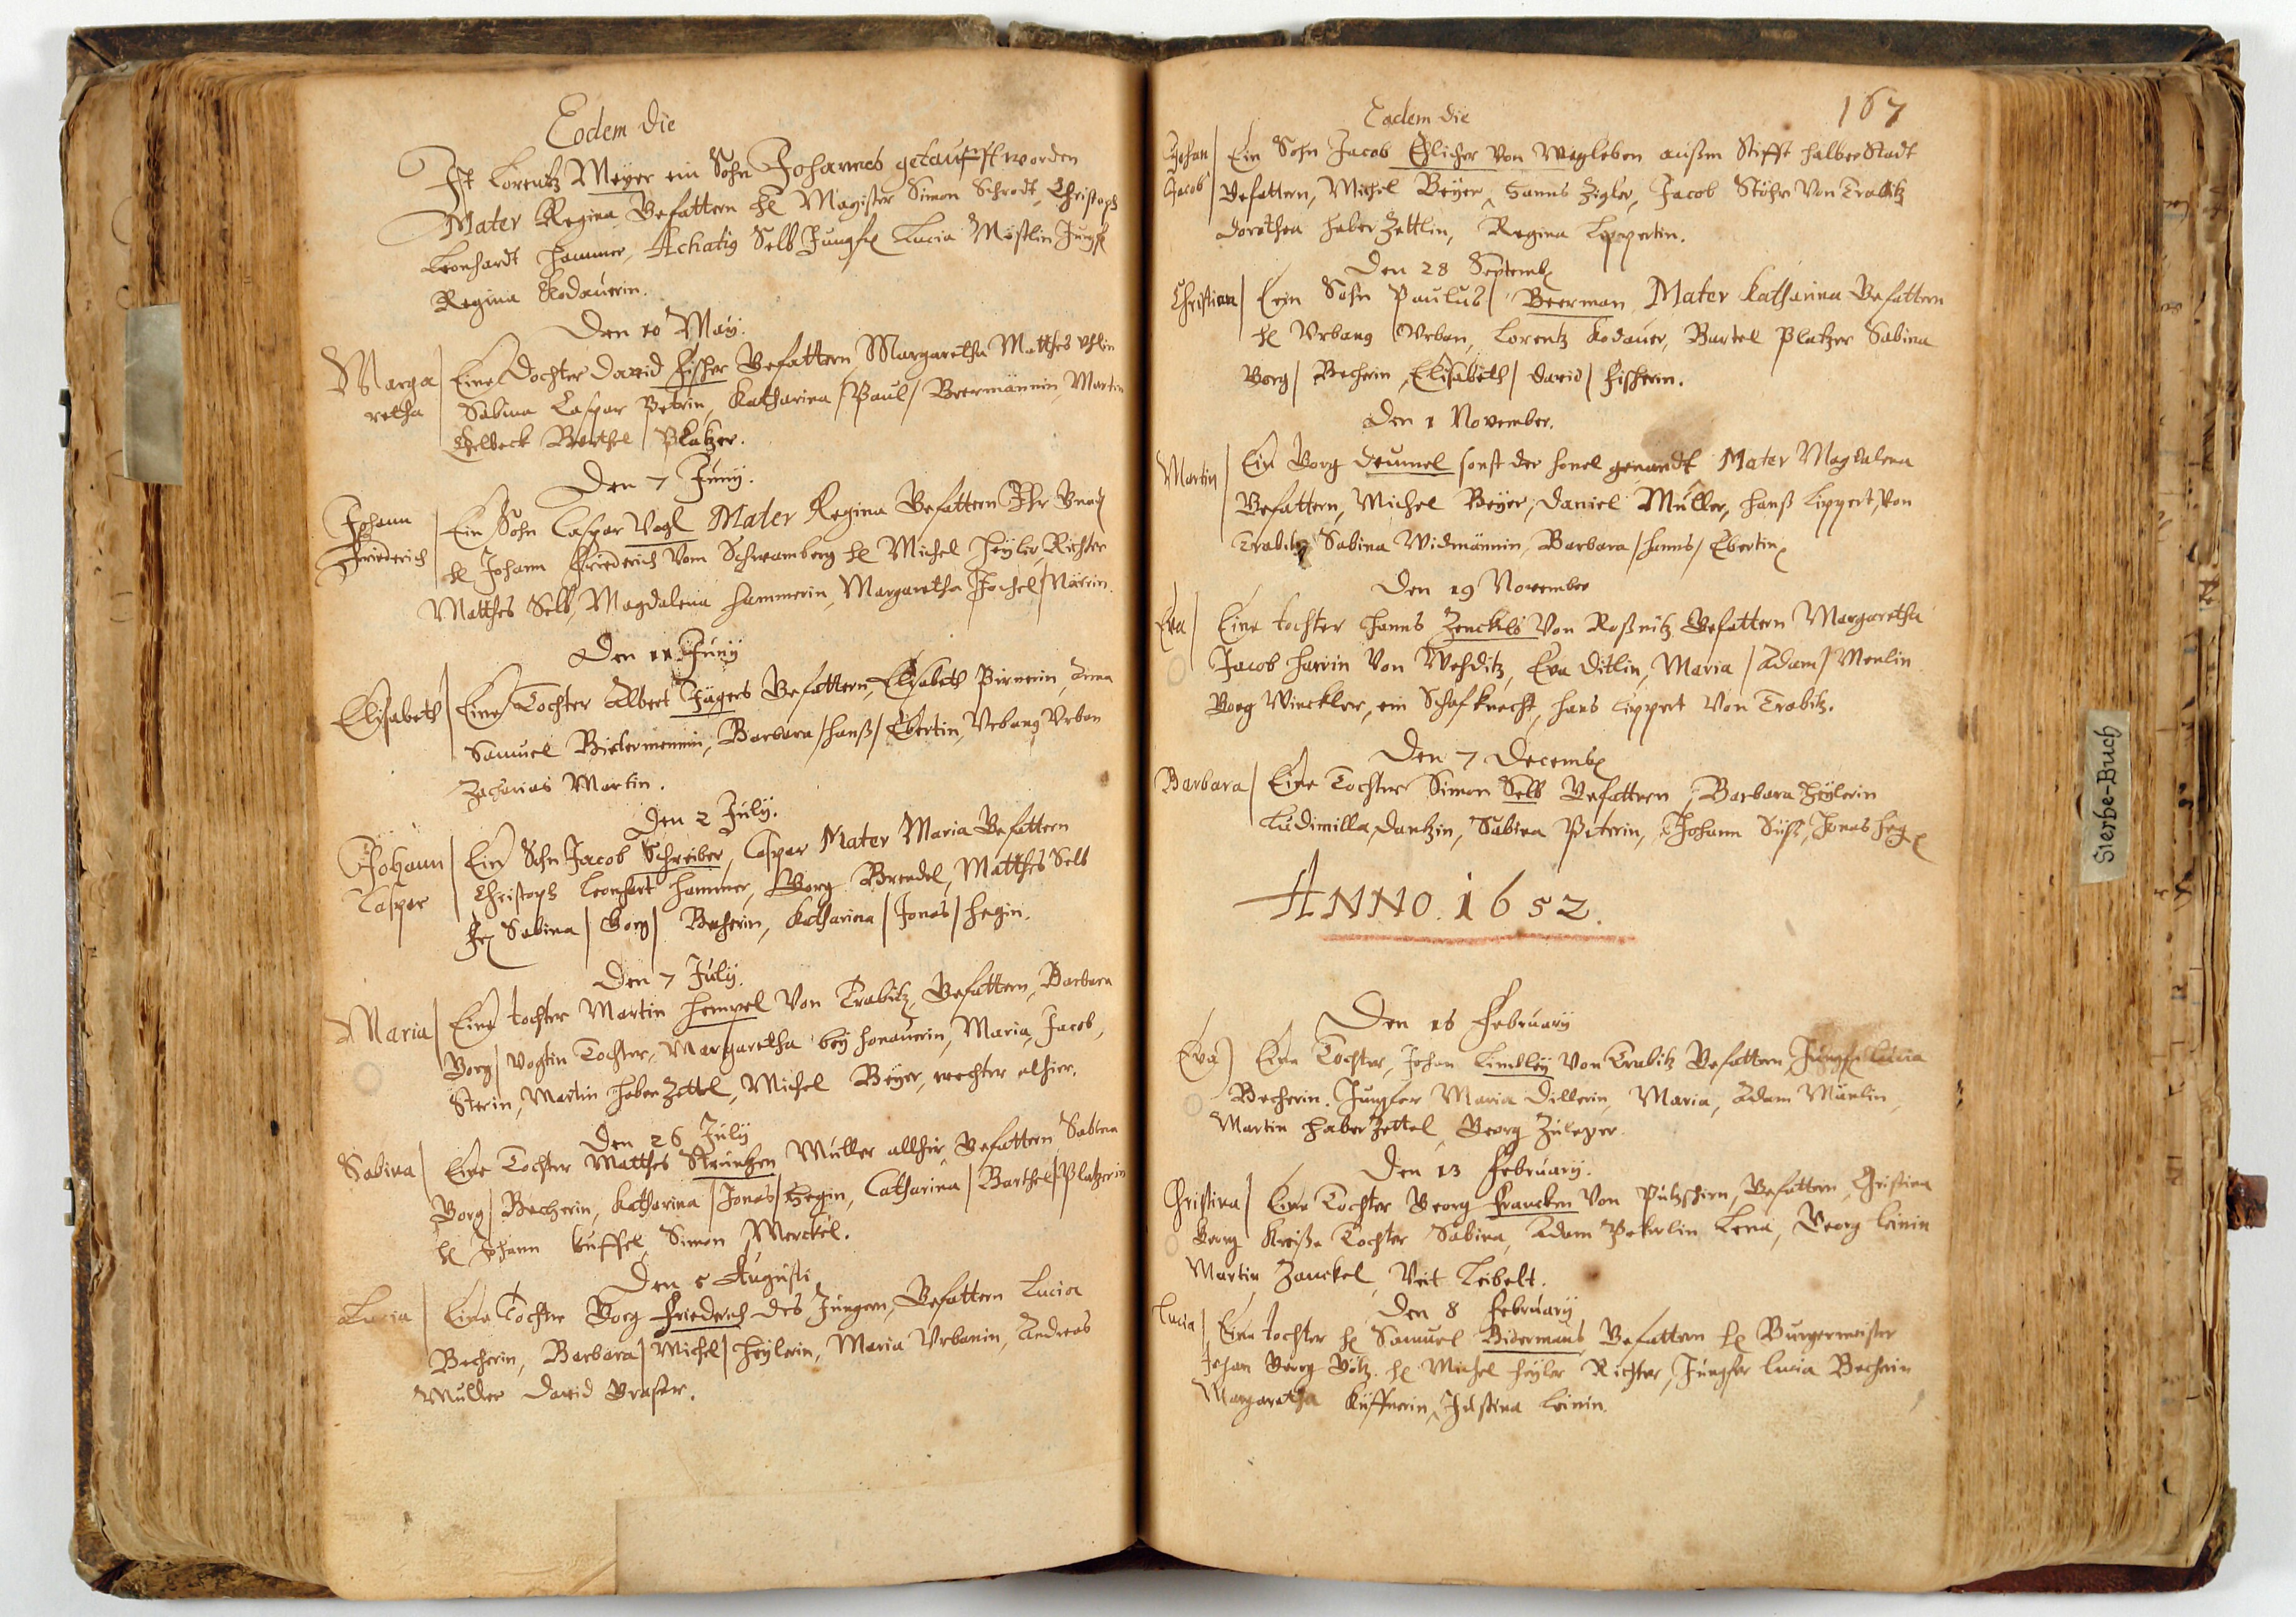 Eodem die
Ist Lorentz Meyer ein Sohn Johannes getaufft worden
Mater Regina Gefattern H. Magister Simon Schrodt, Christoph
Leonhardt Hammer, Achatig Selb Jungfr. Lucia Jungfr.
Regina Kodauerin.
Den 10 May.
Marga
retha
Eine Dochter David Fischer Gefattern Margaretha Matthes
Sabina Caspar Peterin, Katharina /Paul/ Beermännin, Martin
Barthel Platzer.
Den 7 Juny.
Johann
Friederich
Ein Sohn Caspar Vogl Mater Regina Gefattern Ihr Gnad.
H. Johann Friederich Vom Schwamberg H. Michel Heyler, Richter
Matthes Selb, Magdalena Hammerin, Margaretha
Den 11 Juny
Elisabeth
Eine Tochter Albert Jägers Gefattern, Elisabeth Pirnerin, Anna
Samuel Bidermennin, Barbara /Hanß/ Ebertin, Urbang Urban
Zacharias Martin.
Den 2 July.
Johann
Caspar
Ein Sohn Jacob Schreiber, Caspar Mater Maria Gefattern
Christoph Leonhart Hammer, Georg Brendel, Matthes Selb
Fr. Sabina /Georg/ Becherin, Katharina /Jonas/ Hegin.
Den 7 July.
Maria
Eine tochter Martin Hempel Von Trabitz, Gefattern, Barbara
Georg/ Vogtin Tochter, Margaretha bey Honauerin, Maria, Jacob,
Sterin, Martin Haber Zettel, Michel Beyer, wechter alhier.
Den 26 July
Sabina
Eine Tochter Matthes Müller allhir, Gefattern Sabina
Georg/ Becherin, Katharina /Jonas/ Hegin, Catharina /Barthel/ Platzerin
H. Johann Küffel, Simon Merckel.
Den 5 Augusti
Lucia
Eine Tochter Georg Friederich des Jüngern, Gefattern Lucia
Becherin, Barbara /Michel/ Heylerin, Maria Urbanin, Andreas
Müller David Graser.
167
Eadem die
Johan
Jacob
Ein Sohn Jacob Ehlicher von Wegleben außm Stifft Halber Stadt
Gefattern, Michel Beyer, Hanns Zigler, Jacob Stöhr Von Trabitz
Dorothea Haber Zettlin, Regina Lippertin.
Den 28 Septemb.
Christian
Ein Sohn Paulus/ Beerman Mater Katharina Gefattern
H. Urbang Urban, Lorentz Kodauer, Bartel Platzer Sabina
Georg/ Becherin, Elisabeth/ David/ Fischerin.
Den 1 November.
Martin
Ein Georg Deumel sonst der Honel genandt Mater Magdalena
Gefattern, Michel Beyer, Daniel Müller, Hanß Lippert, von
Trabitz Sabina Widmännin, Barbara /Hanns/ Ebertin
Den 19 November
Eva
Eine tochter Hanns Zenckls Von Roßnitz Gefattern Margaretha
Jacob Von Eva Ditlin, Maria /Adam/ Menlin
Georg Winckler, ein Schafknecht, Hans Lippert Von Trabitz.
Den 7 Decemb.
Barbara
Eine Tochter Simon Selb Gefattern, Barbara Heylerin
Ludimilla Dantzin, Sabina Peterin, Johann Süß, Jonas Heg
ANNO. 1652.
Den 16 February
Eva
Eine Tochter, Johan Von Trabitz Gefattern, Jungfr. Lucia
Becherin, Jungfer Maria Dillerin, Maria, Adam Mänlin
Martin Haber Zettel, Georg
Den 13 February.
Christina
Eine Tochter Georg Francken Von Gefattern, Christina
Georg Tochter Sabina, Adam Lena, Georg Leinin
Martin Zanckel, Veit Leibelt.
Den 8 February
Lucia
Eine tochter H. Samuel Bidermans, Gefattern H. Burgermeister
Johan Georg Götz. H. Michel Heyler Richter, Jungfer Lucia Becherin
Margaretha Küffnerin, Justina Leinin.
Sterbe-Buch